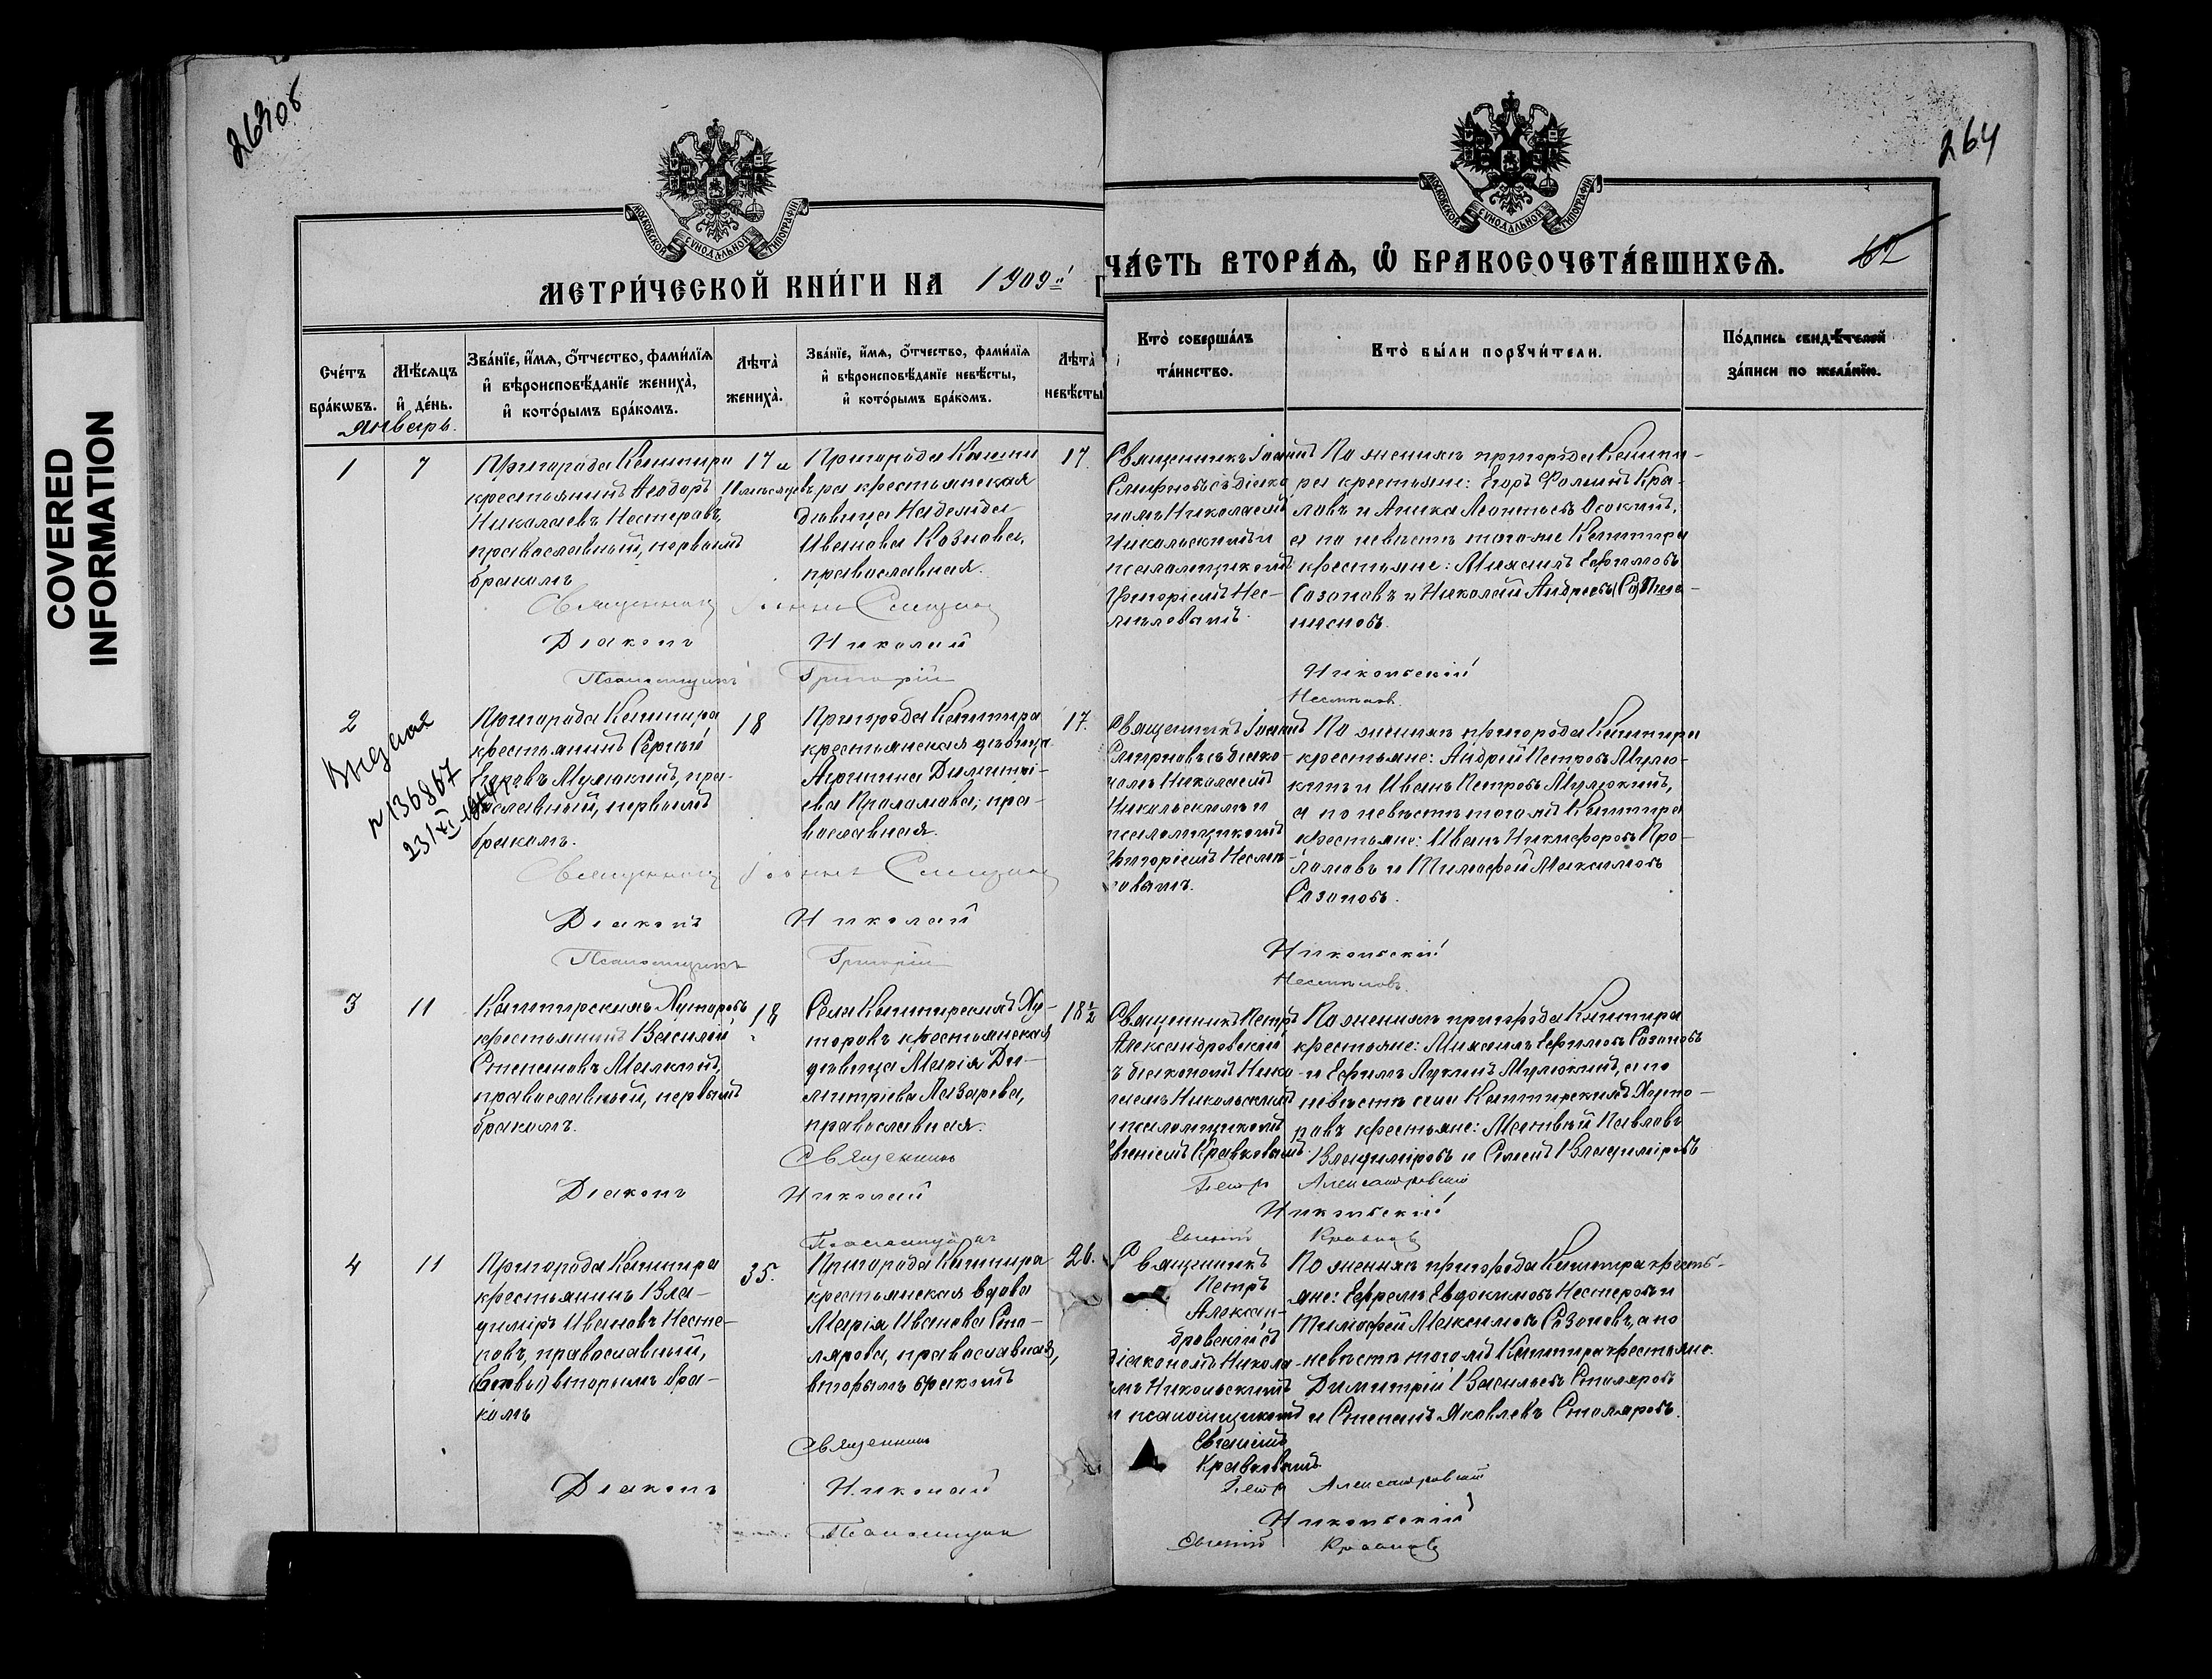 263об
264
МОСКОВСКОЙ СѴНОДАЛЬНОЙ ТИПОГРАФІИ
МОСКОВСКОЙ СѴНОДАЛЬНОЙ ТИПОГРАФІИ
МЕТРИ́ЧЕСКОЙ КНИ́ГИ НА 1909й Г
ЧА́СТЬ ВТОРА́Ѧ, Ѽ БРАКОСОЧЕТА́ВШИХСѦ.
62
COVERED
INFORMATION
Счéтъ
брáкѡвъ.
Мѣ́сѧцъ
и҆ дéнь.
Звáнїе, и҆́мѧ, ѻ҆́тчество, фамѝлїѧ
и҆ вѣроисповѣ́данїе женихà,
и҆ котóрымъ брáкомъ.
Лѣ́тà
женихà.
Звáнїе, и҆́мѧ, ѻ҆́тчество, фамѝлїѧ
и҆ вѣроисповѣ́данїе невѣ́сты,
и҆ котóрымъ брáкомъ.
Лѣ́тà
невѣ́сты
Ктò совершáлъ
тáинство.
Ктò бы́ли порꙋчи́тели.
Пóдпись свидѣ́телей
зáписи по желáнїю.
Январь.
1
7
Пригорода Каштира
крестьянинъ Ѳеодоръ
Николаевъ Нестеровъ,
православный, первымъ
бракомъ
17 и
11 мѣсяцевъ
Пригорода Кашти
ра крестьянская
дѣвица Надежда
Иванова Козлова,
православная.
17.
Священникъ Іоаннъ
Смирновъ съ діако
номъ Николаемъ
Никольскимъ и
псаломщикомъ
Григоріемъ Нес-
мѣловымъ.
По женихѣ пригорода Кашти-
ра крестьяне: Егоръ Ѳоминъ Кра-
ловъ и Аника Леонтьевъ Осокинъ,
а по невѣстѣ того же Каштира
крестьяне: Михаилъ Ефимовъ
Созоновъ и Николай Андреевъ
Священникъ Іоаннъ Смирнов
Діаконъ Николай Никольскій
Псаломщикъ Григорій Несмѣлов.
2
Выдана
№136867
23/XI
Пригорода Каштира
крестьянинъ Сергѣй
Егоровъ Мулюкинъ, пра-
вославный, первымъ
бракомъ.
18
Пригорода Каштира
крестьянская дѣвица
Агрипина Димитрі-
ева Проломова, пра-
вославная.
17.
Священникъ Іоаннъ
Смирновъ съ діако-
номъ Николаемъ
Никольскимъ и
псаломщикомъ
Григоріемъ Несмѣ-
ловымъ.
По женихѣ пригорода Каштира
крестьяне: Андрей Петровъ Мулю-
кинъ и Иванъ Петровъ Мулюкинъ,
а по невѣстѣ того же Каштира
крестьяне: Иванъ Никифоровъ Про-
ломовъ и Тимофей Максимовъ
Созоновъ.
Священникъ Іоаннъ Смирнов
Діаконъ Николай Никольскій
Псаломщикъ Григорій Несмѣловъ.
3
11
Каштирскихъ Хуторовъ
крестьянинъ Василій
Степановъ Малкинъ,
православный, первымъ
бракомъ.
18
Села Каштирскихъ Ху-
торовъ крестьянская
дѣвица Марія Ди-
митріева Лазарева,
православная.
18 1/2
Священникъ Петръ
Александровскій
съ діакономъ Нико
лаемъ Никольскимъ
и псаломщикомъ
Евгеніемъ Кравковымъ.
По женихѣ пригорода Каштира
крестьяне: Михаилъ Ефимовъ Созоновъ
и Ефимъ Лукинъ Мулюкинъ, а по
невѣстѣ села Каштирскихъ Хуто-
ровъ крестьяне: Матвѣй Павловъ
Владиміровъ и Семенъ Владиміровъ
Священникъ Петръ Александровскій
Діаконъ Николай Никольскій
Псаломщикъ Евгеній Кравков
4
11
Пригорода Каштира
крестьянинъ Вла-
диміръ Ивановъ Несте-
ровъ, православный,
вторымъ бра-
комъ
35.
Пригорода Каштира
крестьянская вдова
Марія Иванова Сто-
лярова, православная,
вторымъ бракомъ
26.
Священникъ
Петръ
Алексан-
дровскій съ
діакономъ Никола-
емъ Никольскимъ
и псаломщикомъ
Евгеніемъ
Кравковымъ
По женихѣ пригорода Каштира кресть-
яне: Ефремъ Евдокимовъ Нестеровъ и
Тимофей Максимовъ Созоновъ, а по
невѣстѣ того же Каштира крестьяне:
Димитрій Васильевъ Столяровъ
и Степанъ Яковлевъ Столяровъ.
Священникъ Петръ Александровскій
Діаконъ Николай Никольскій
Псаломщикъ Евгеній Кравков